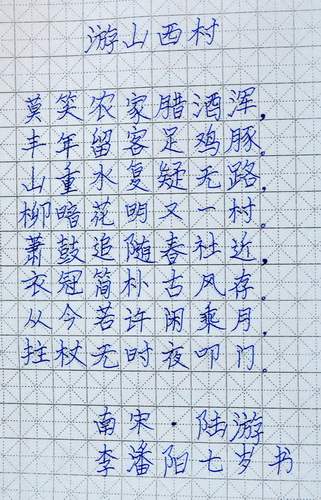 游山西村
莫笑农家腊酒浑，
丰年留客足鸡豚。
山重水复疑无路，
柳暗花明又一村。
萧鼓追随春社近，
衣冠简朴古风存。
从今若许闲乘月，
拄杖无时夜叩门。
南宋·陆游
李潘阳七岁书